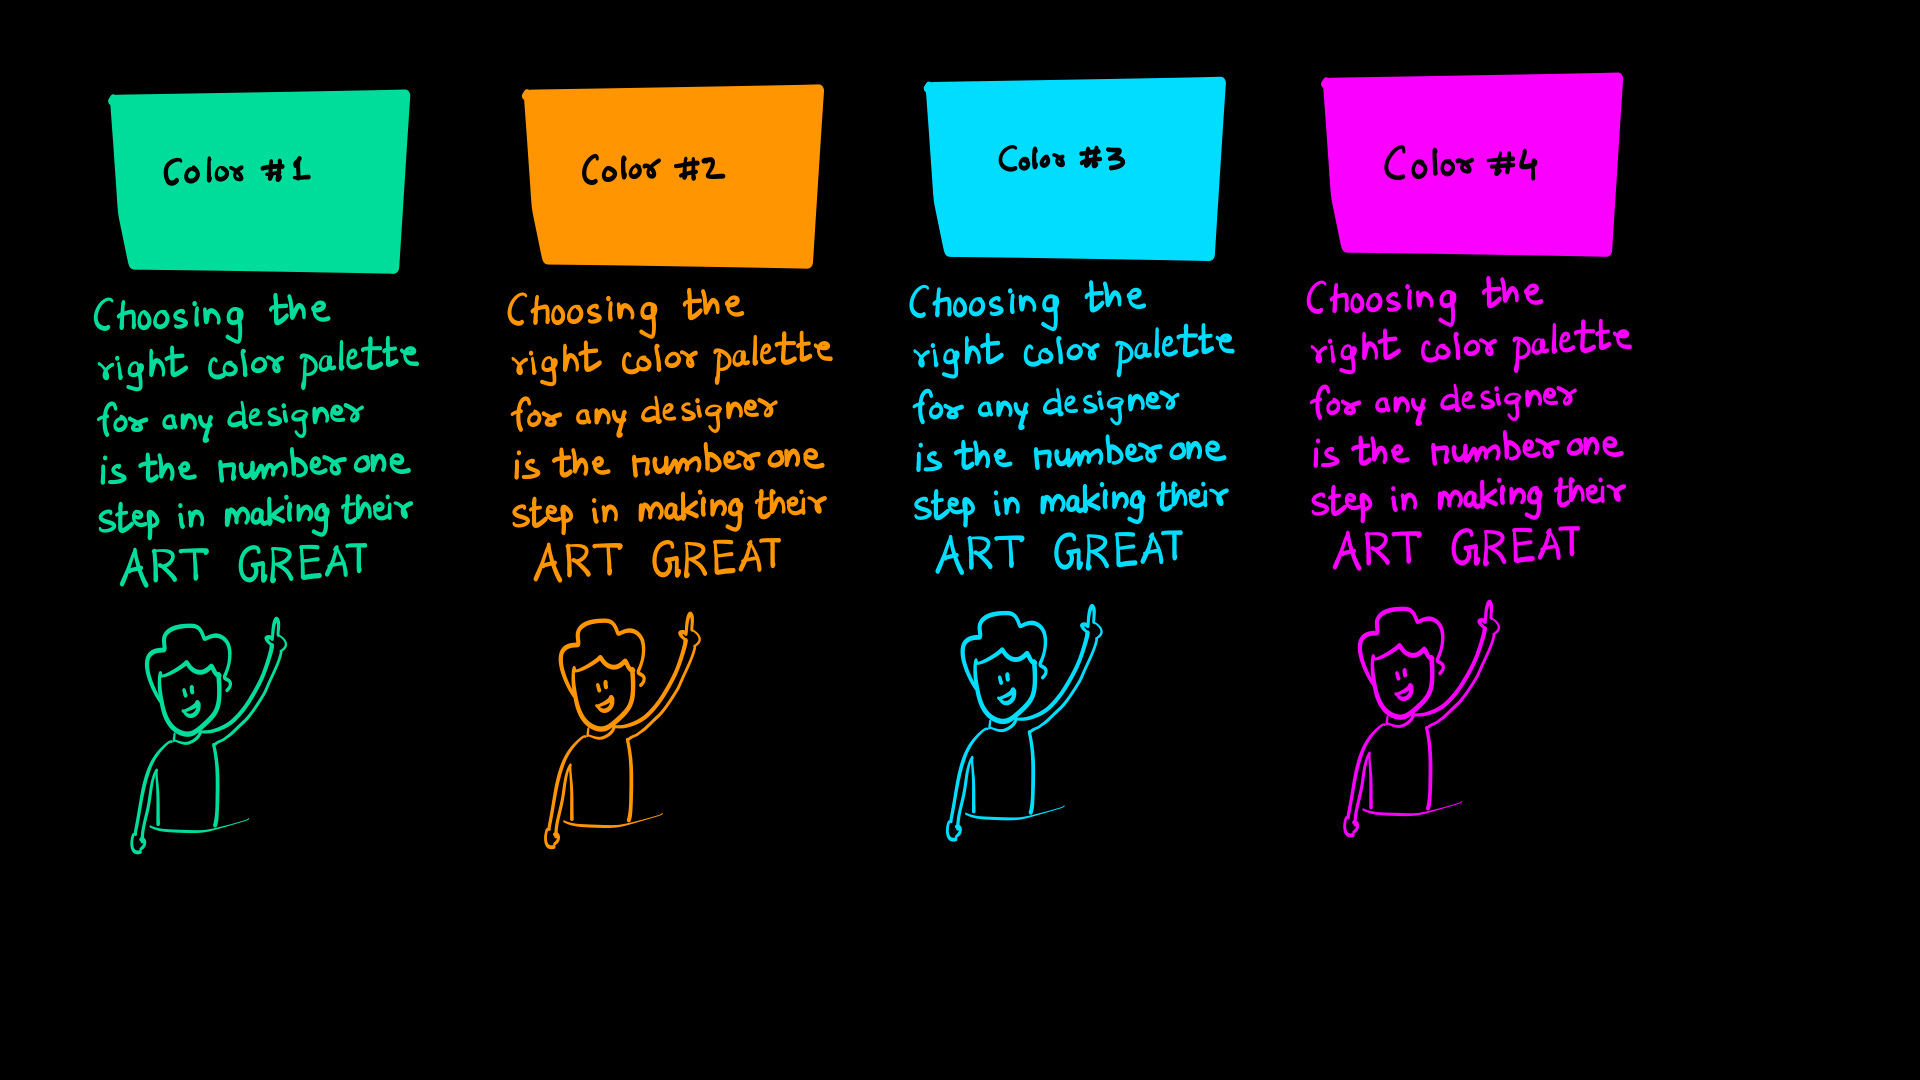 Color #1
Choosing the
right color palette
for any designer
is the number one
step in making their
ART GREAT
Color #2
Choosing the
right color palette
for any designer
is the number one
step in making their
ART GREAT
Color #3
Choosing the
right color palette
for any designer
is the number one
step in making their
ART GREAT
Color #4
Choosing the
right color palette
for any designer
is the number one
step in making their
ART GREAT